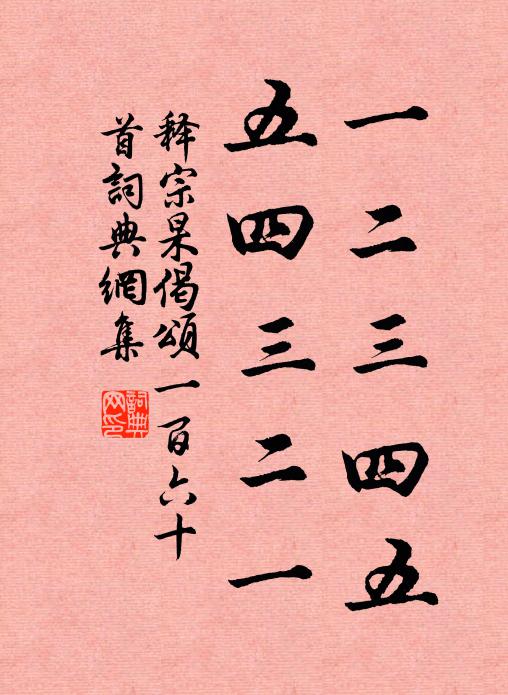 一二三四五
五四三二一
释宗杲偈頌一百六十
首詞典網集
詞典
网印